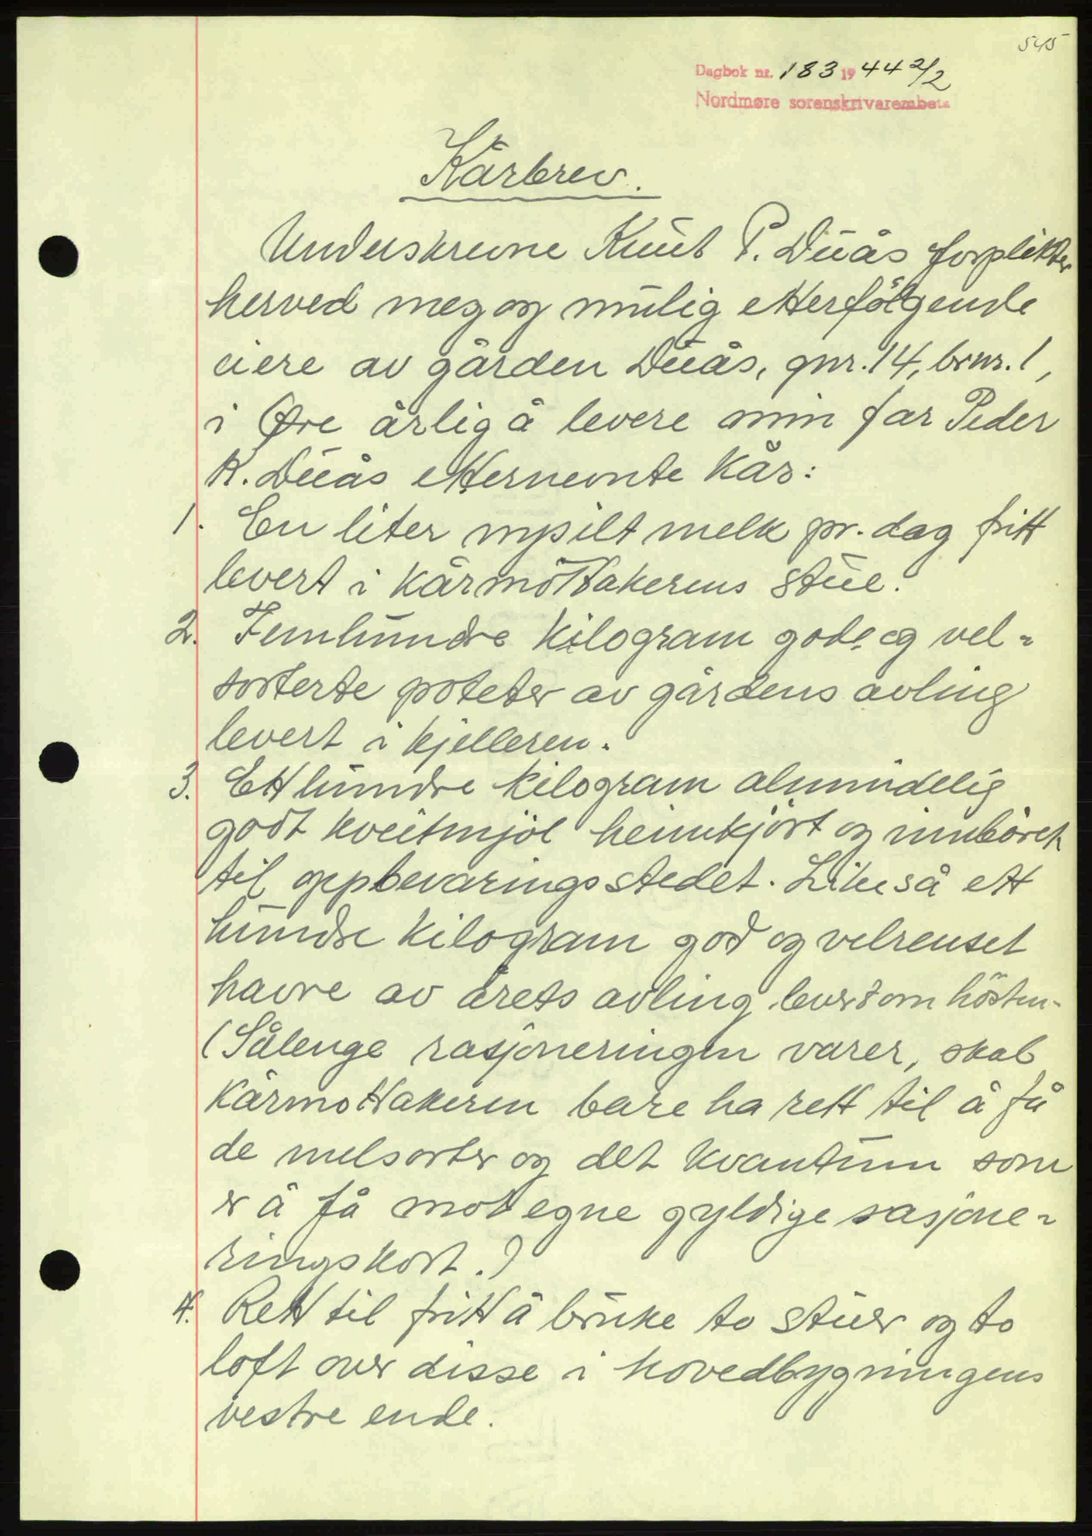 545
Dagbok nr. 183 1944 2/2
Nordmøre sorenskriverembete
Kårbrev.
Underskrevne Knut P. Duås forplikter
herved meg og mulig etterfölgende
eiere av gården Duås, gnr. 14, brnr. 1,
i Øre årlig å levere min far Peder
K. Duås etternevnte Kår:
1. En liter nysilt melk pr. dag fritt
levert i kårmottakerens stue.
2. Femhundre kilogram gode og vel-
sorterte poteter av gårdens avling
levert i kjelleren.
3. Etthundre kilogram almindelig
godt kveitmjöl heimkjört og innböret
til oppbevaringsstedet. Likeså ett
hundre kilogram god og velrenset
havre av årets avling levert om hösten.
(Sålenge rasjoneringen varer, skal
Kårmottakeren bare ha rett til å få
de melsorter og det kvantum som
er å få mot egne gyldige rasjone-
ringskort.)
4. Rett til fritt å bruke to stuer og to
loft over disse i hovedbygningens
vestre ende.